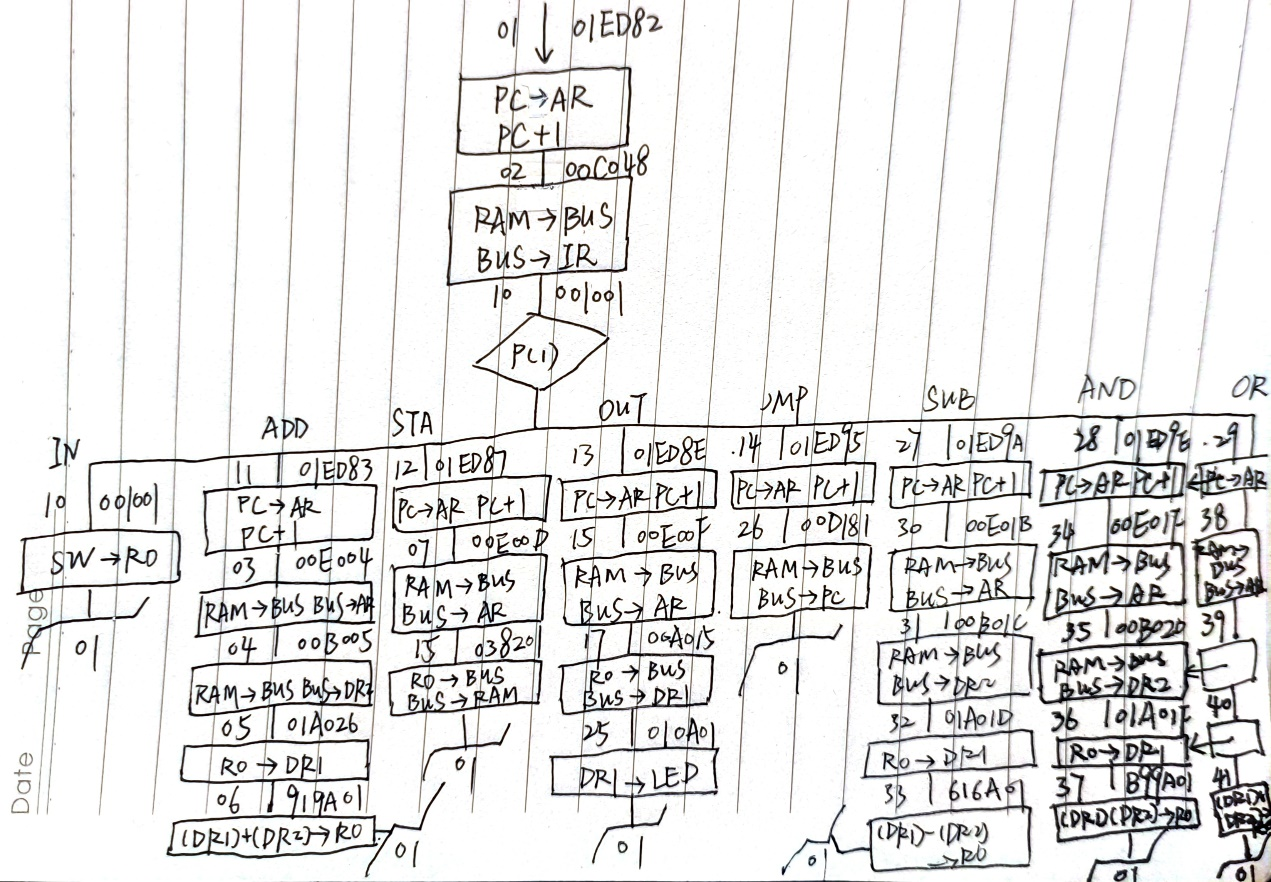 01 01ED82
PC→AR
PC+1
02 00C048
RAM→BUS
BUS→IR
10 001001
P(1)
IN
10 001001
SW→R0
01
ADD
11 01ED83
PC→AR
PC+1
03 00E004
RAM→BUS BUS→AR
04 00B005
RAM→BUS BUS→DR2
05 01A026
R0→DR1
06 919A01
(DR1)+(DR2)→R0
01
STA
12 01ED87
PC→AR PC+1
07 00E00D
RAM→BUS
BUS→AR
15 038201
R0→BUS
BUS→RAM
01
OUT
13 01ED8E
PC→AR PC+1
15 00E00F
RAM→BUS
BUS→AR
17 00A015
R0→BUS
BUS→DR1
25 010A01
DR1→LED
01
JMP
14 01ED95
PC→AR PC+1
26 00D181
RAM→BUS
BUS→PC
01
SUB
27 01ED9A
PC→AR PC+1
30 00E01B
RAM→BUS
BUS→AR
31 00B01C
RAM→BUS
BUS→DR2
32 01A01D
R0→DR1
33 616A01
(DR1)-(DR2)
→R0
01
AND
28 01ED9E
PC→AR PC+1
34 00E01F
RAM→BUS
BUS→AR
35 00B020
RAM→BUS
BUS→DR2
36 01A01F
R0→DR1
37 B99A01
(DR1)(DR2)→R0
01
OR
29
PC→AR
38
RAM→
BUS
BUS→AR
39
40
41
01
Page
Date